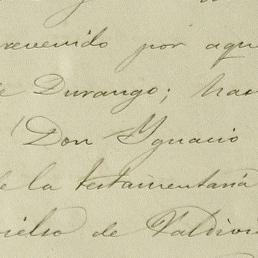 prevenido por aqu
de Durango; hac
Don Ygnacio
de la testamentaria
ielso de Valdivi